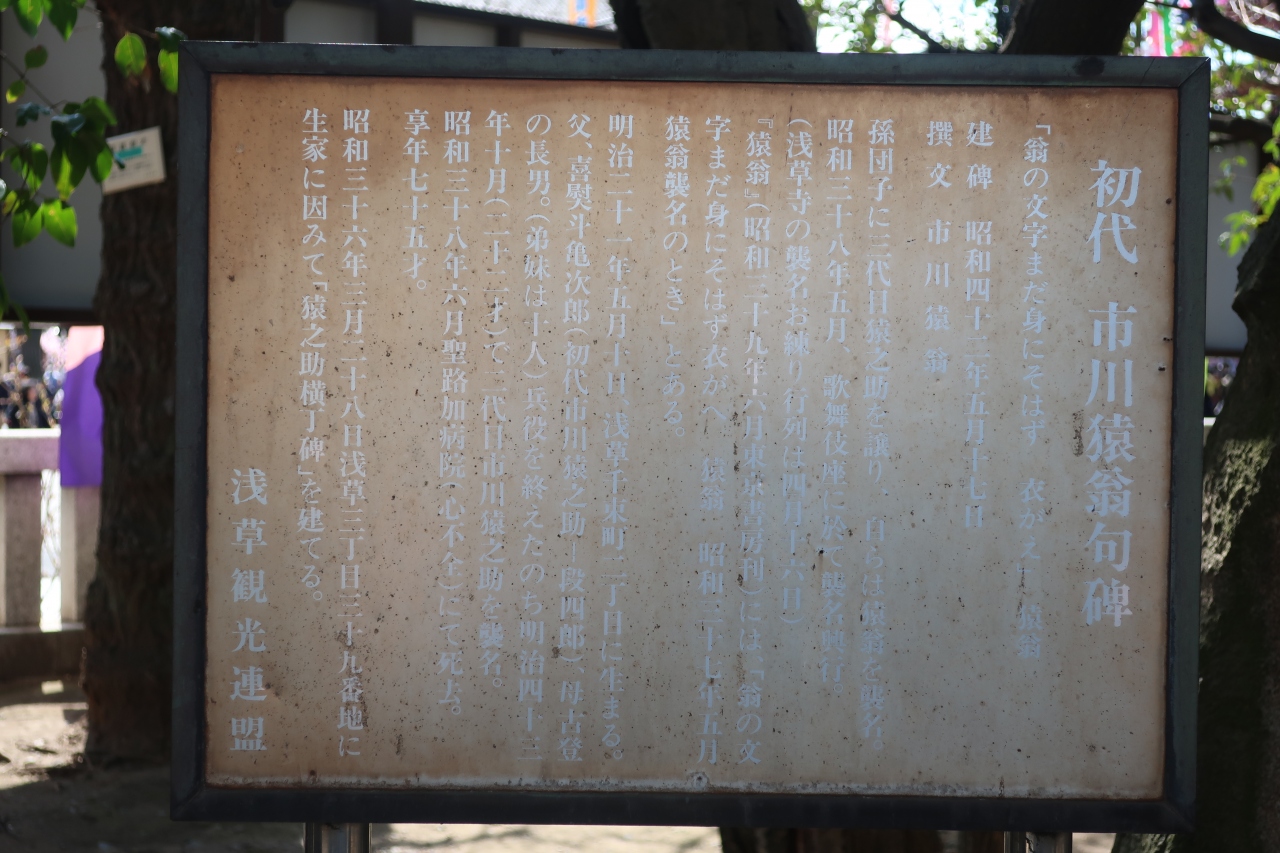 初代 市川猿翁句碑
「翁の文字まだ身にそはず 衣かえ」 猿翁
建碑 昭和四十二年五月十七日
撰文 市川猿翁
孫団子に三代目猿之助を譲り、自らは猿翁を襲名。
昭和三十八年五月、歌舞伎座に於て襲名興行。
(浅草寺の襲名お練り行列は四月十六日)
『猿翁』(昭和三十九年六月東京書房刊)には「翁の文
字まだ身にそはず衣がへ 猿翁 昭和三十七年五月
猿翁襲名のとき」とある。
明治二十一年五月十日、浅草千束町二丁目に生まる。
父、喜熨斗亀次郎(初代市川猿之助―段四郎)、母古登
の長男。(弟妹は十人)兵役を終えたのち明治四十三
年十月(二十二才)で二代目市川猿之助を襲名。
昭和三十八年六月聖路加病院(心不全)にて死去。
享年七十五才。
昭和三十六年三月二十八日浅草三丁目三十九番地に
生家に因みて「猿之助横丁碑」を建てる。
浅草観光連盟